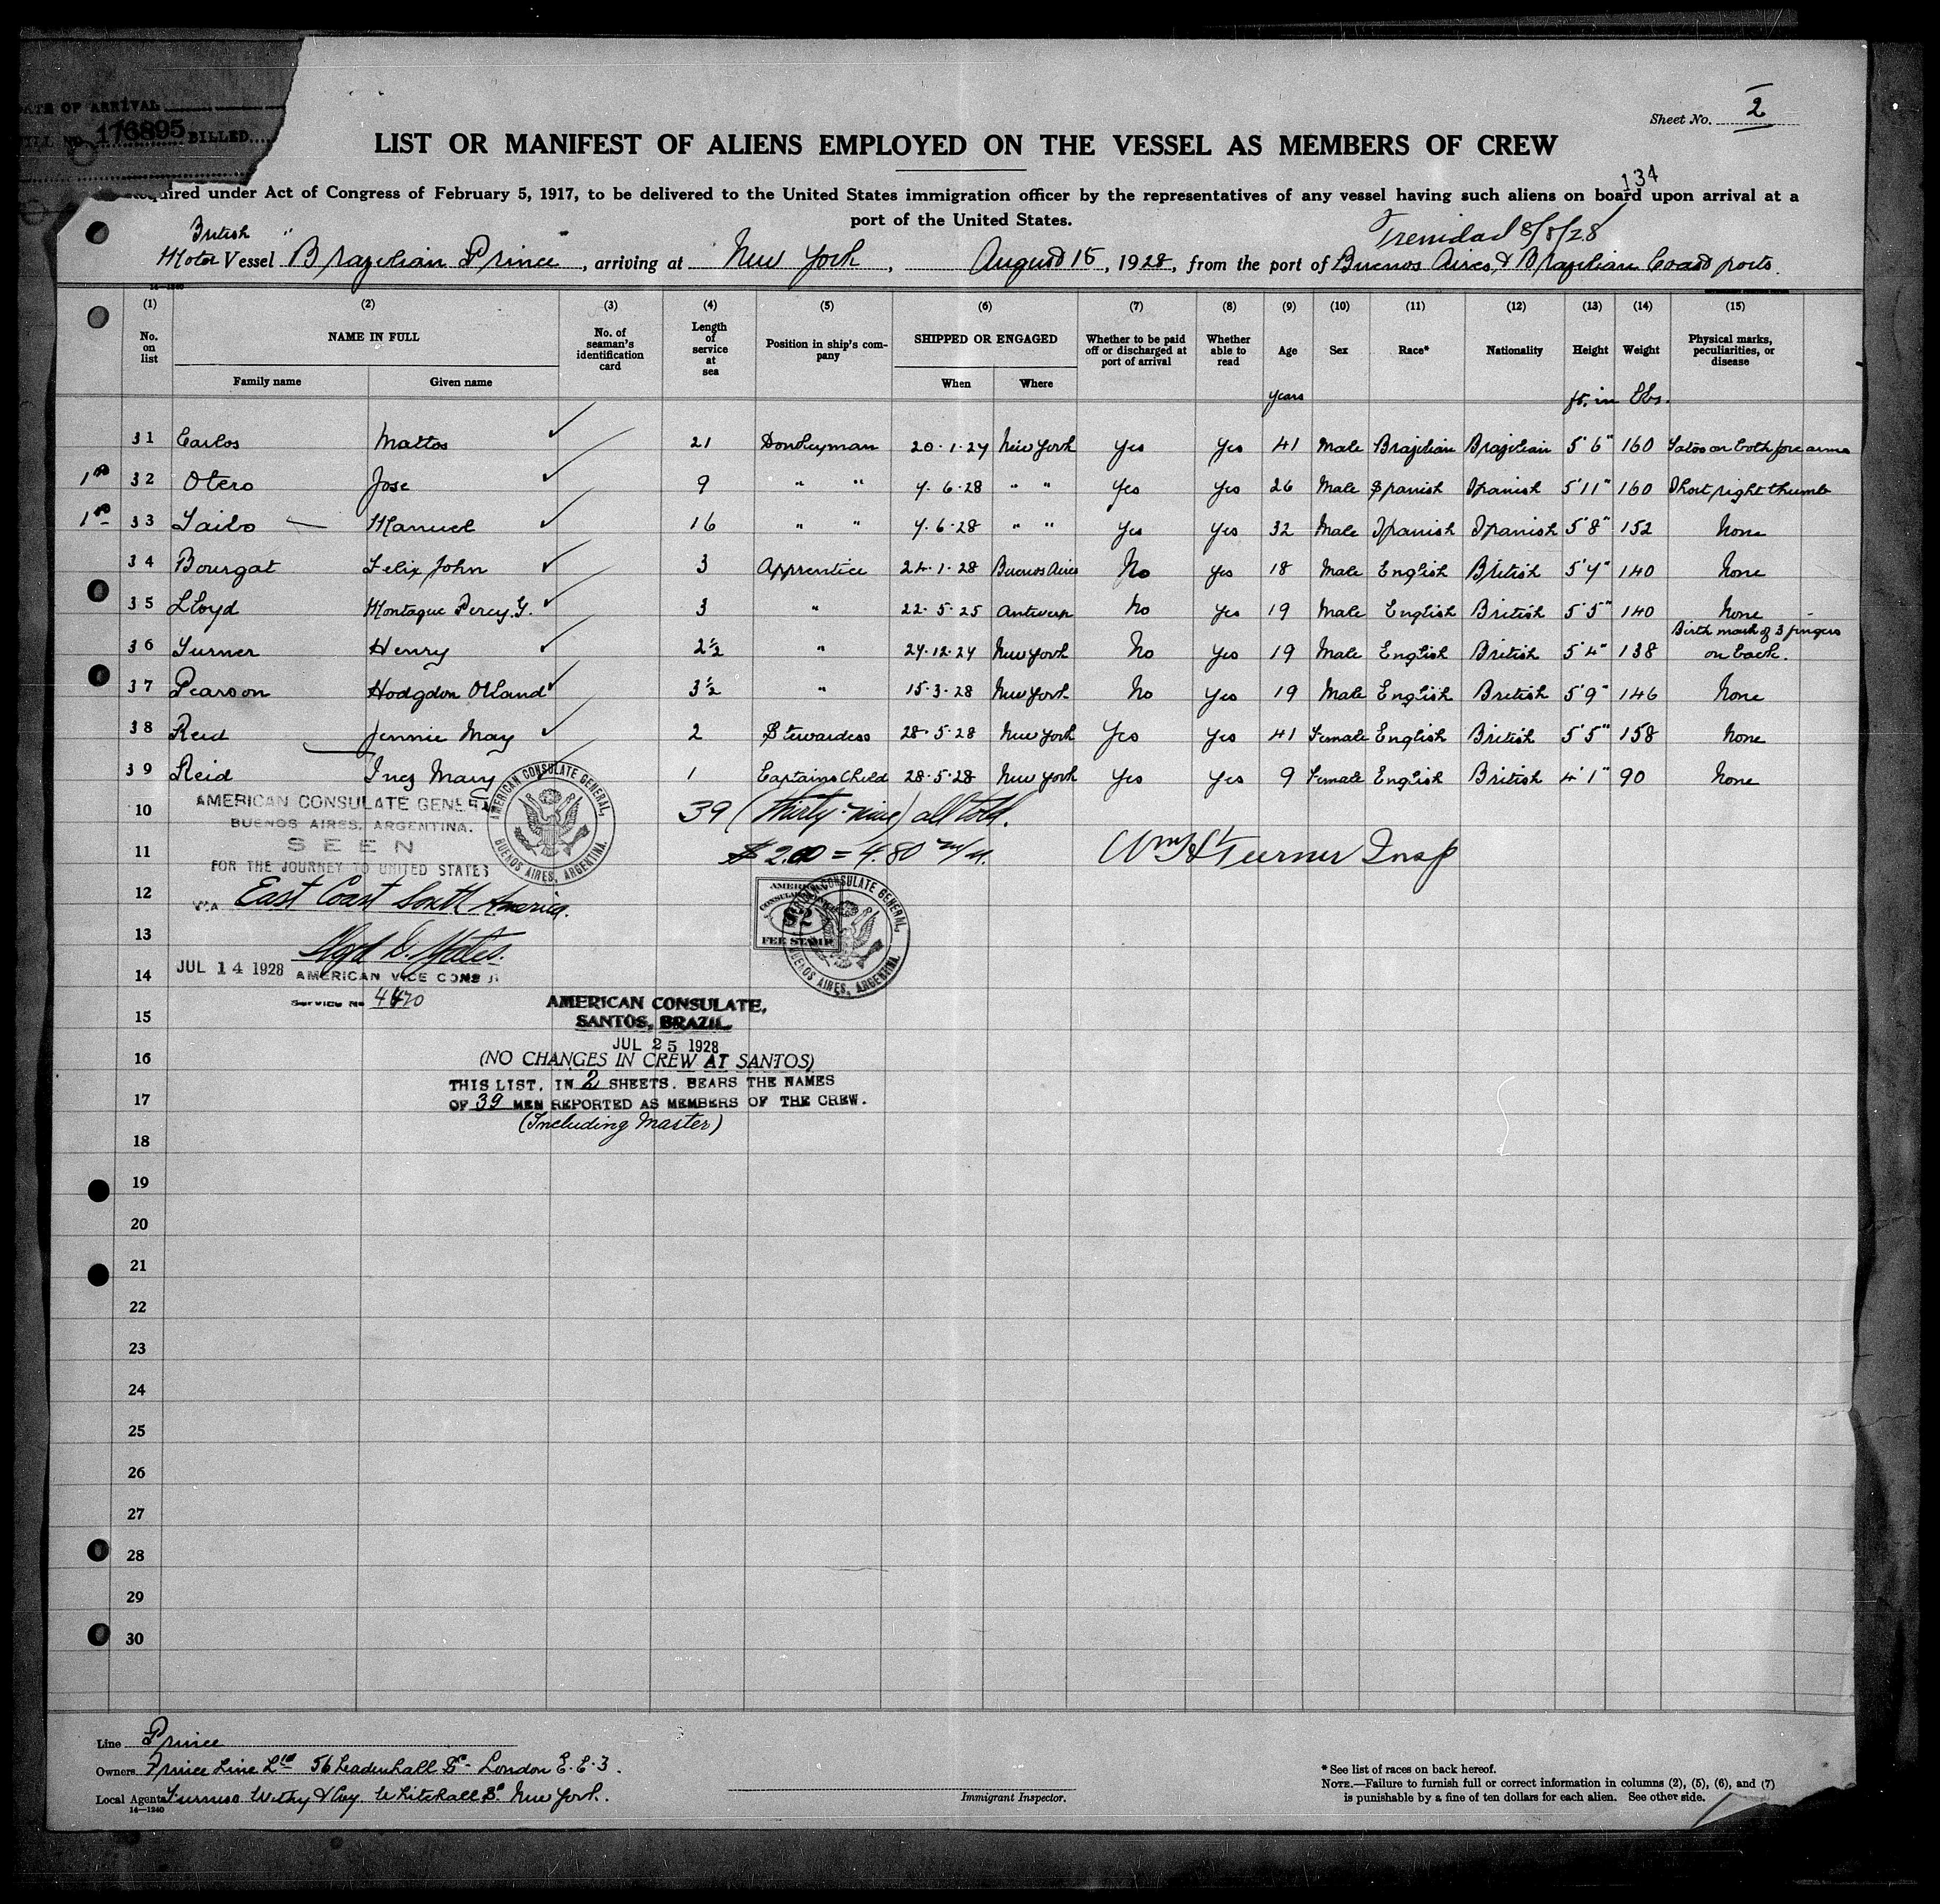 DATE OF ARRIVAL
BILL NO. 176895 BILLED
Sheet No. 2
LIST OR MANIFEST OF ALIENS EMPLOYED ON THE VESSEL AS MEMBERS OF CREW
134
Required under Act of Congress of February 5, 1917, to be delivered to the United States immigration officer by the representatives of any vessel having such aliens on board upon arrival at a
port of the United States.
British
Trinidad 8/8/28
Motor Vessel Brazilian Prince, arriving at New York, August 15, 1928, from the port of Buenos Aires, & Brazilian Coast ports.
14-1240
(1) (2) (3) (4) (5) (6) (7) (8) (9) (10) (11) (12) (13) (14) (15)
No. on list NAME IN FULL Family name Given name No. of seaman's identification card Length of service at sea Position in ship's company SHIPPED OR ENGAGED When Where Whether to be paid off or discharged at port of arrival Whether able to read Age Sex Race* Nationality Height Weight Physical marks, peculiarities, or disease
years ft. in Lbs.
31 Carlos Mattos 21 Donkeyman 20.1.27 New York Yes Yes 41 Male Brazilian Brazilian 5'6" 160 Tatos on both fore arms
32 Otero Jose 9 " " 7.6.28 " " Yes Yes 26 Male Spanish Spanish 5'11" 160 Short right thumb
33 Taibo Manuel 16 " " 7.6.28 " " Yes Yes 32 Male Spanish Spanish 5'8" 152 None
34 Bourgat Felix John 3 Apprentice 24.1.28 Buenos Aires No Yes 18 Male English British 5'7" 140 None
35 Lloyd Montague Percy G. 3 " 22.5.25 Antwerp No Yes 19 Male English British 5'5" 140 None
36 Turner Henry 2½ " 27.12.27 New York No Yes 19 Male English British 5'4" 138 Birth mark of 3 fingers on back.
37 Pearson Hodgdon Olland 3½ " 15.3.28 New York No Yes 19 Male English British 5'9" 146 None
38 Reid Jennie May 2 Stewardess 28.5.28 New York Yes Yes 41 Female English British 5'5" 158 None
39 Reid Inez Mary 1 Captains Child 28.5.28 New York Yes Yes 9 Female English British 4'1" 90 None
AMERICAN CONSULATE GENERAL, BUENOS AIRES, ARGENTINA.
AMERICAN CONSULATE GENERAL
BUENOS AIRES, ARGENTINA.
SEEN
FOR THE JOURNEY TO UNITED STATES
VIA East Coast South America.
JUL 14 1928 AMERICAN VICE CONSUL
Service No 4420
10 39 (thirty-nine) all told.
11 $2.00 = 4.80 m/n. Wm H Turner Insp
AMERICAN CONSULAR $2 FEE STAMP
AMERICAN CONSULATE GENERAL, BUENOS AIRES, ARGENTINA.
12
13
14
15
AMERICAN CONSULATE,
SANTOS, BRAZIL,
JUL 25 1928
16 (NO CHANGES IN CREW AT SANTOS)
THIS LIST, IN 2 SHEETS, BEARS THE NAMES
17 OF 39 MEN REPORTED AS MEMBERS OF THE CREW.
(Including Master)
18
19
20
21
22
23
24
25
26
27
28
29
30
Line Prince
Owners Prince Line Ltd 56 Leadenhall St. London E.C.3.
Local Agents Furness Withy & Coy. Whitehall St. New York.
14—1240
Immigrant Inspector.
* See list of races on back hereof.
NOTE.—Failure to furnish full or correct information in columns (2), (5), (6), and (7)
is punishable by a fine of ten dollars for each alien. See other side.